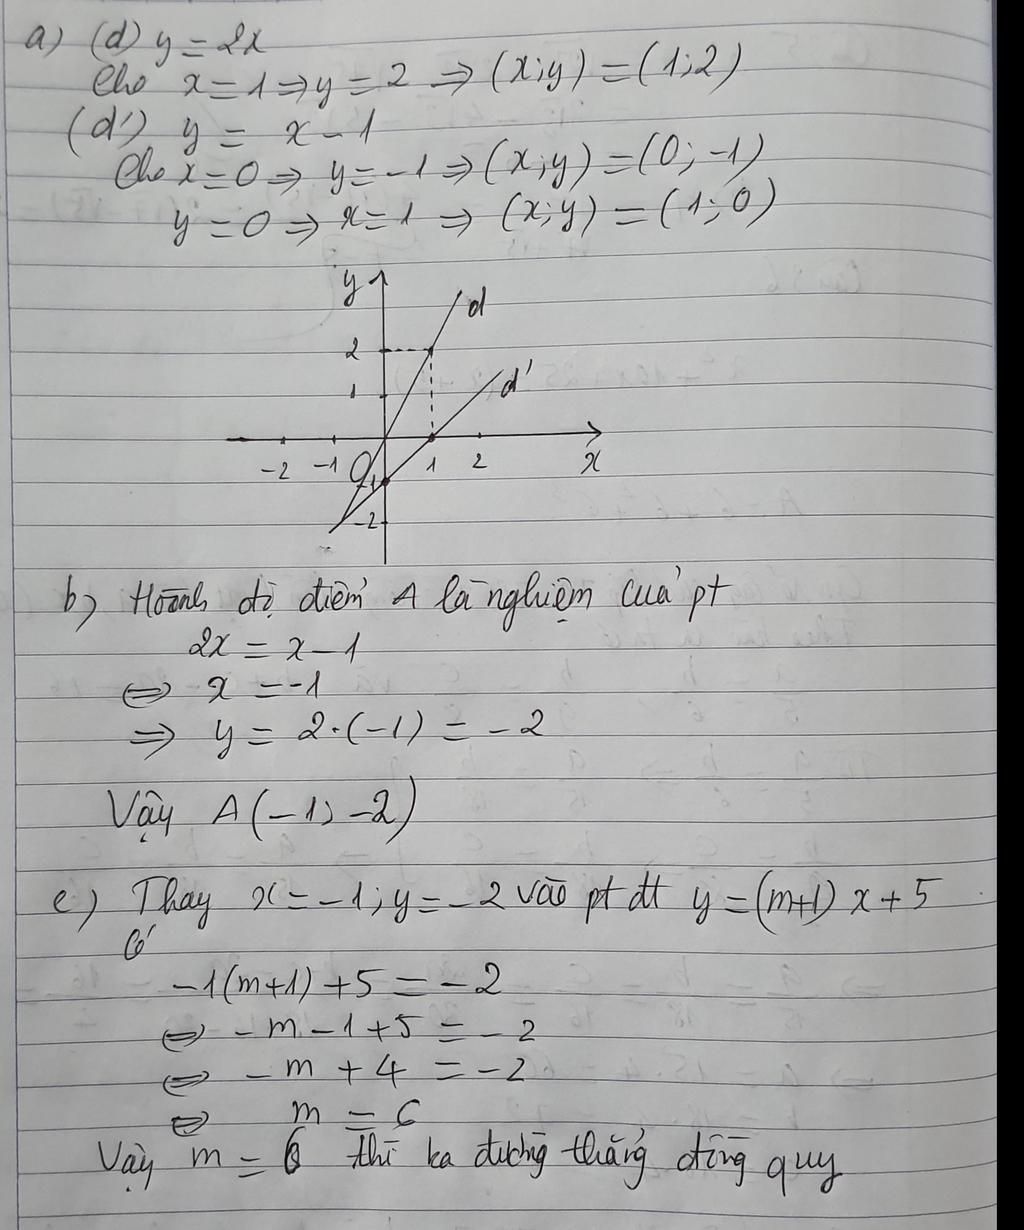 a) (d) y = 2x
Cho x = 1 ⇒ y = 2 ⇒ (x;y) = (1;2)
(d') y = x - 1
Cho x = 0 ⇒ y = -1 ⇒ (x;y) = (0; -1)
y = 0 ⇒ x = 1 ⇒ (x;y) = (1; 0)
y
d
2
d'
1
-2 -1 O 1 2 x
-1
-2
b) Hoành độ điểm A là nghiệm của pt
2x = x - 1
⇔ x = -1
⇒ y = 2.(-1) = -2
Vậy A(-1; -2)
c) Thay x = -1; y = -2 vào pt đt y = (m+1) x + 5
Có
-1(m+1) + 5 = -2
⇔ -m - 1 + 5 = -2
⇔ -m + 4 = -2
⇔ m = 6
Vậy m = 6 thì ba đường thẳng đồng quy